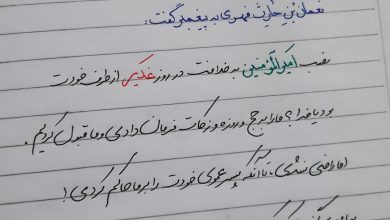 نعمان بن حارث فهری به پیغمبر گفت:
نصب امیرالمؤمنین به خلافت در روز غدیر از طرف خودت
بود یا خدا؟ ما را به حج و روزه و زکات فرمان دادی و ما قبول کردیم.
اما راضی نشدی، تا آنکه پسر عموی خودت را بر ما حاکم کردی!